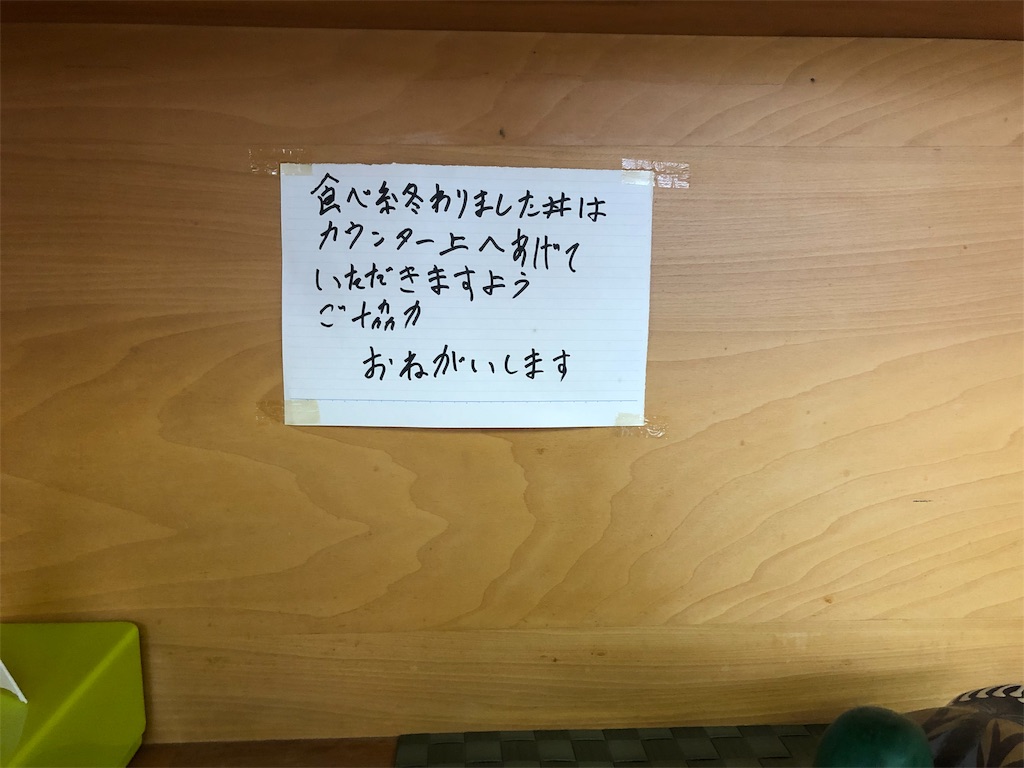 食べ終わりました丼は
カウンター上へあげて
いただきますよう
ご協力
おねがいします